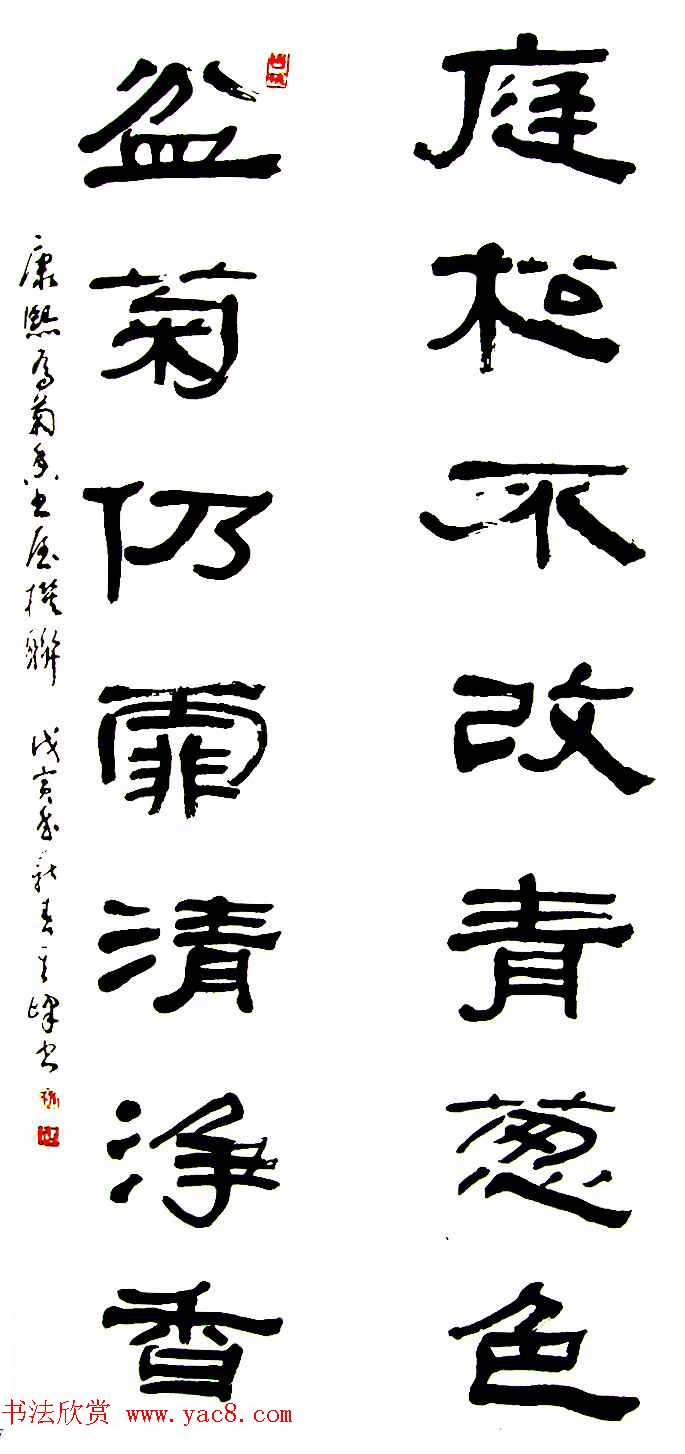 庭松不改青葱色
盆菊仍霏清净香
康熙为菊香书屋撰联 戊寅年新春
书法欣赏 www.yac8.com